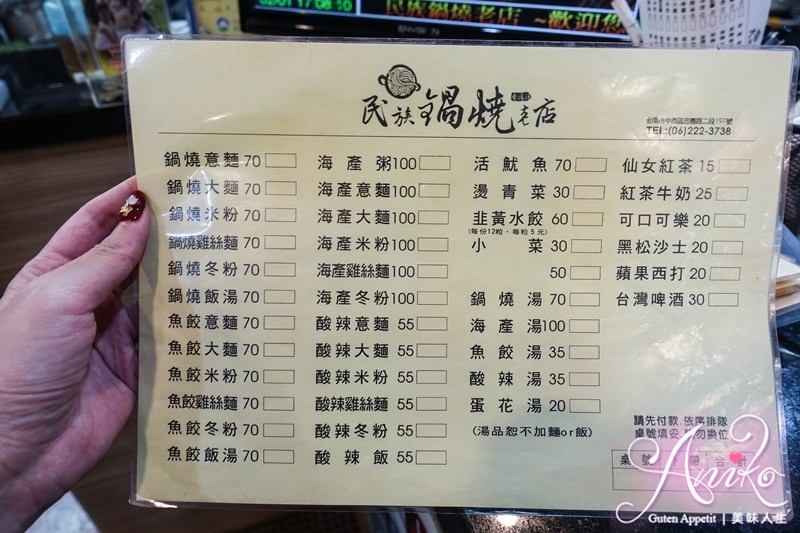 02/01 17:08:10
民族鍋燒老店 ~歡迎您
民族鍋燒老店
台南市中西區忠義路二段197號
TEL:(06)222-3738
鍋燒意麵 70
鍋燒大麵 70
鍋燒米粉 70
鍋燒雞絲麵 70
鍋燒冬粉 70
鍋燒飯湯 70
魚餃意麵 70
魚餃大麵 70
魚餃米粉 70
魚餃雞絲麵 70
魚餃冬粉 70
魚餃飯湯 70
海產粥 100
海產意麵 100
海產大麵 100
海產米粉 100
海產雞絲麵 100
海產冬粉 100
酸辣意麵 55
酸辣大麵 55
酸辣米粉 55
酸辣雞絲麵 55
酸辣冬粉 55
酸辣飯 55
活魷魚 70
燙青菜 30
韭黃水餃 60
(每份12粒、每粒5元)
小菜 30
50
鍋燒湯 70
海產湯 100
魚餃湯 35
酸辣湯 35
蛋花湯 20
(湯品恕不加麵or飯)
仙女紅茶 15
紅茶牛奶 25
可口可樂 20
黑松沙士 20
蘋果西打 20
台灣啤酒 30
請先付款.依序排隊
桌號填妥.請勿換位
桌號 帶 合計
Aniko
Guten Appetit | 美味人生